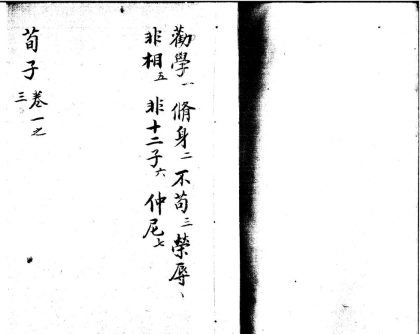 勸學一 脩身二 不苟三 榮辱、
非相五 非十二子六 仲尼七
荀子 卷一之
三